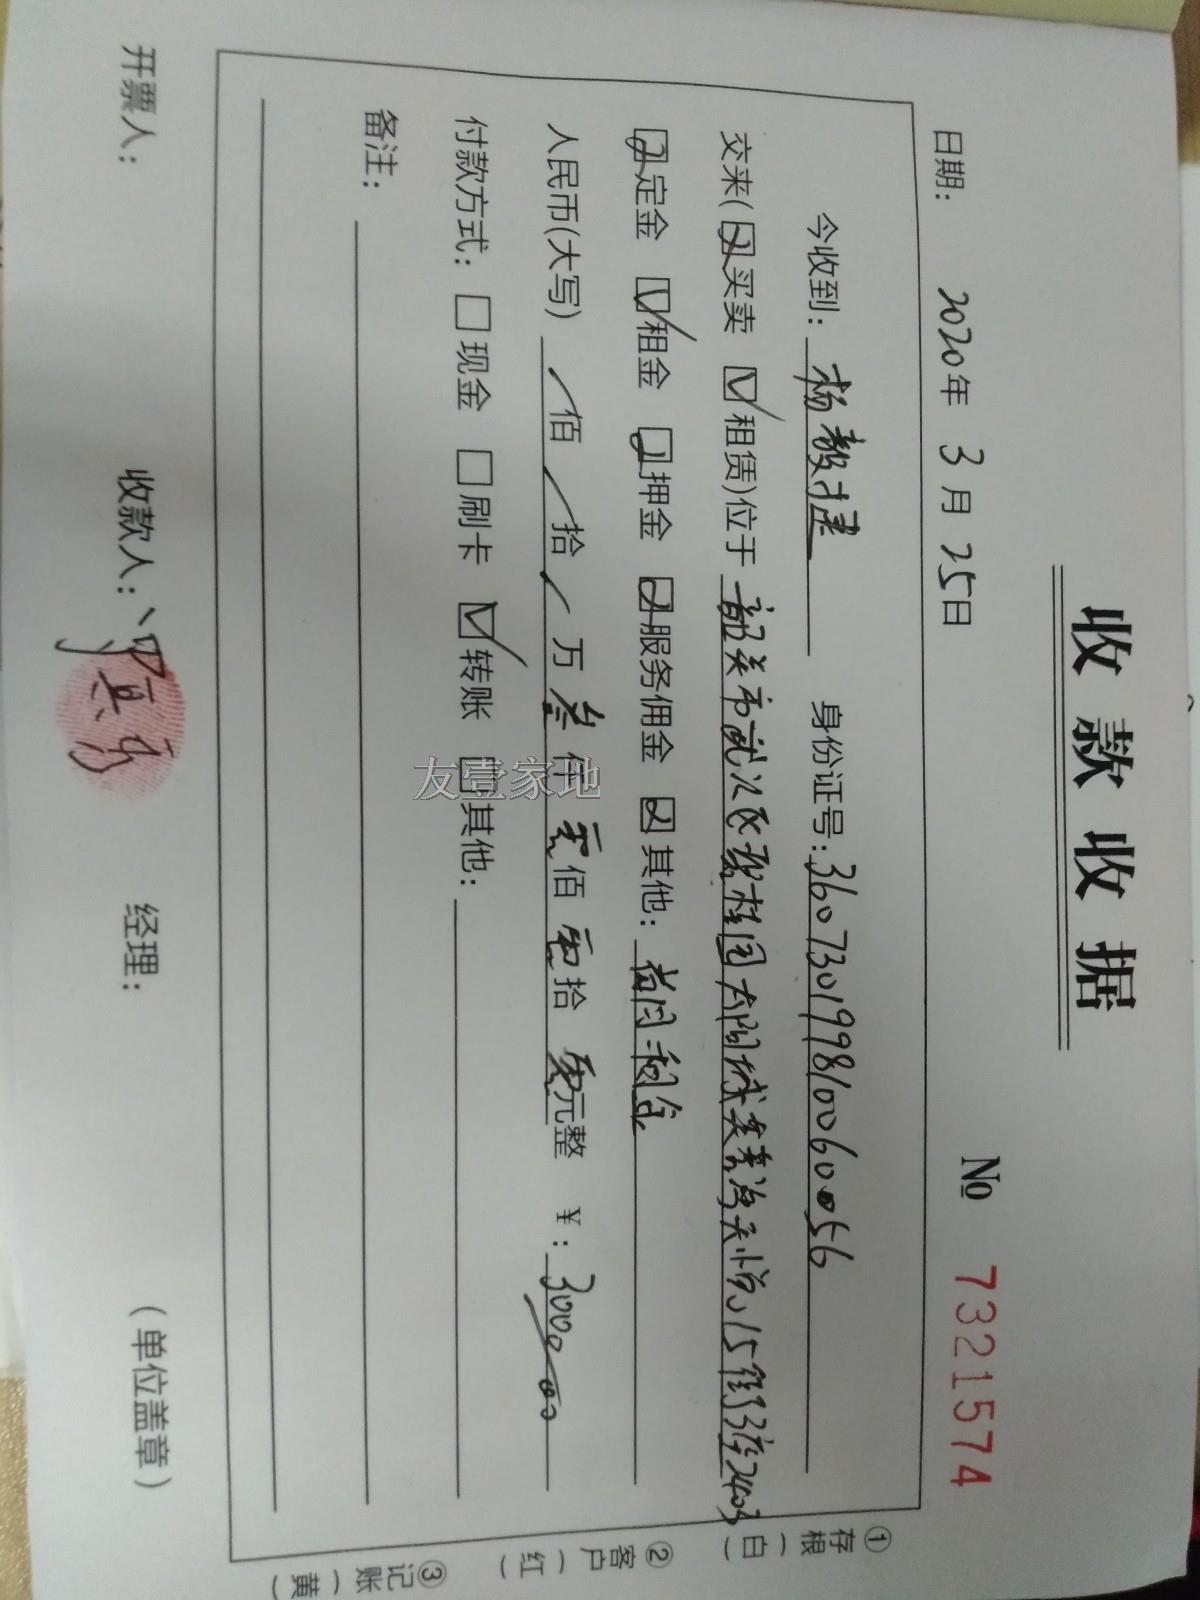 收款收据
№ 7321574
日期: 2020年 3月 25日
今收到: 杨毅 身份证号: 360730199810060056
交来(□买卖 ☑租赁)位于 韶关市武江区碧桂园太阳城 天悦 15 2403
□定金 ☑租金 □押金 □服务佣金 □其他: 首月租金
人民币(大写) / 佰 / 拾 / 万 叁 仟 零 佰 零 拾 零 元整 ¥: 3000.00
付款方式: □现金 □刷卡 ☑转账 □其他:
备注:
开票人: 收款人: 经理: (单位盖章)
①存根(白)
②客户(红)
③记账(黄)
友壹家地